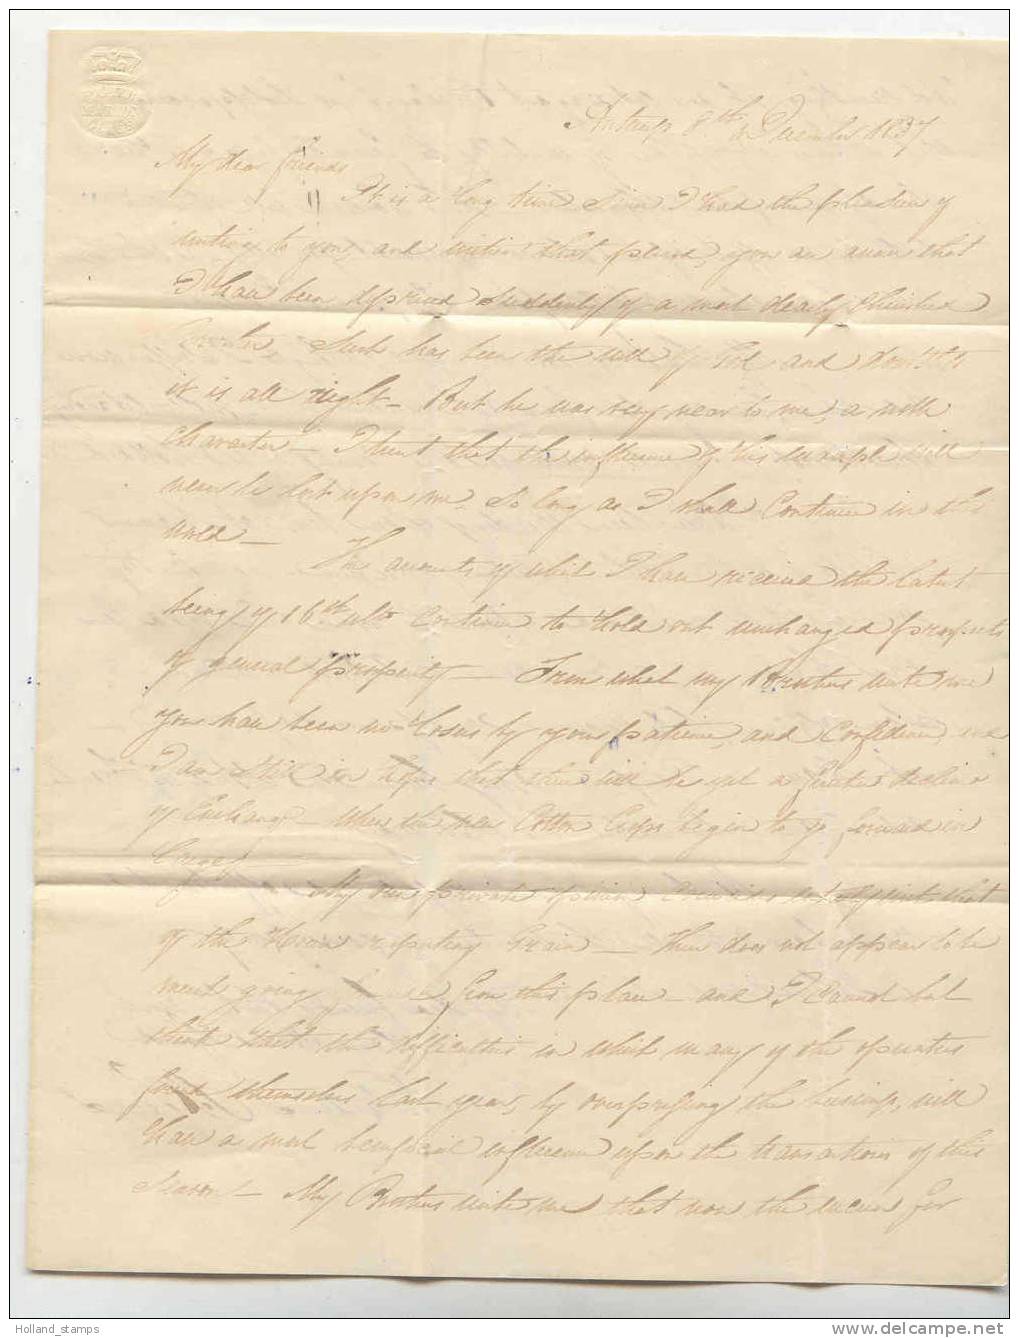 Antwerp 8th December 1837
My dear friends
It is a long time since I had the pleasure of
writing to you, and within that period, you are aware that
I have been deprived suddenly of a most dearly cherished
Brother. Such has been the will of God and doubtless
it is all right – But he was very near to me, a noble
character – I trust that the influence of his example will
never be lost upon me, so long as I shall continue in this
world –
The accounts of which I have received the latest
being of 16th ulto continue to hold out unchanged prospects
of general prosperity – From what my Brothers write me
you have been no losers by your patience, and confidence, and
I am still in hopes that there will be yet a further decline
of Exchange – when the new Cotton Crops begin to go forward in
My own private opinion coincides with that
of the House respecting Grain – There does not appear to be
much going from this place – and I cannot but
think that the difficulties in which many of the operators
found themselves last year, by overpressing the business, will
have a most beneficial influence upon the transactions of this
Season! – My Brothers write me that now the means for
Holland_stamps
www.delcampe.net